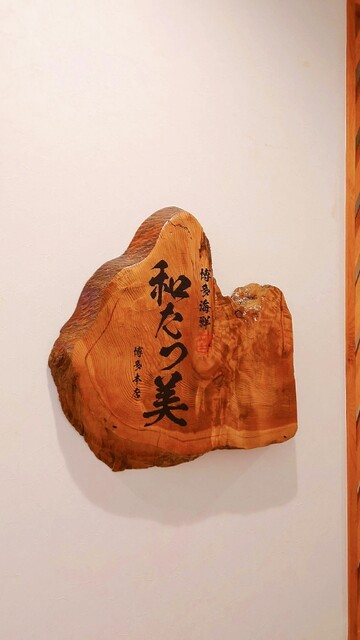 博多海鮮
和たつ美
博多本店